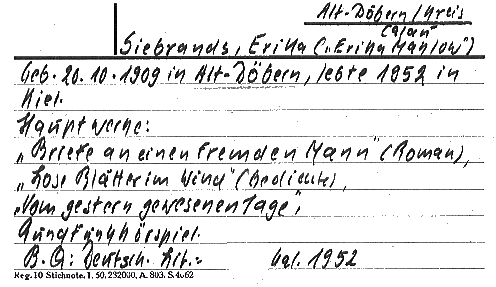 Alt-Döbern/Kreis
Calau
Siebrands, Erika ("Erika Manlow")
Geb. 20.10.1909 in Alt-Döbern, lebte 1952 in
Kiel.
Hauptwerke:
„Briefe an einen fremden Mann" (Roman),
„Lose Blätter im Wind" (Gedichte),
„Vom gestern gewesenen Tage",
Rundfunkhörspiel.
B.Q: Deutsch. Lit.=
Kal. 1952
Reg. 10 Stichnote. 1. 50, 232000, A. 803. S. 4062